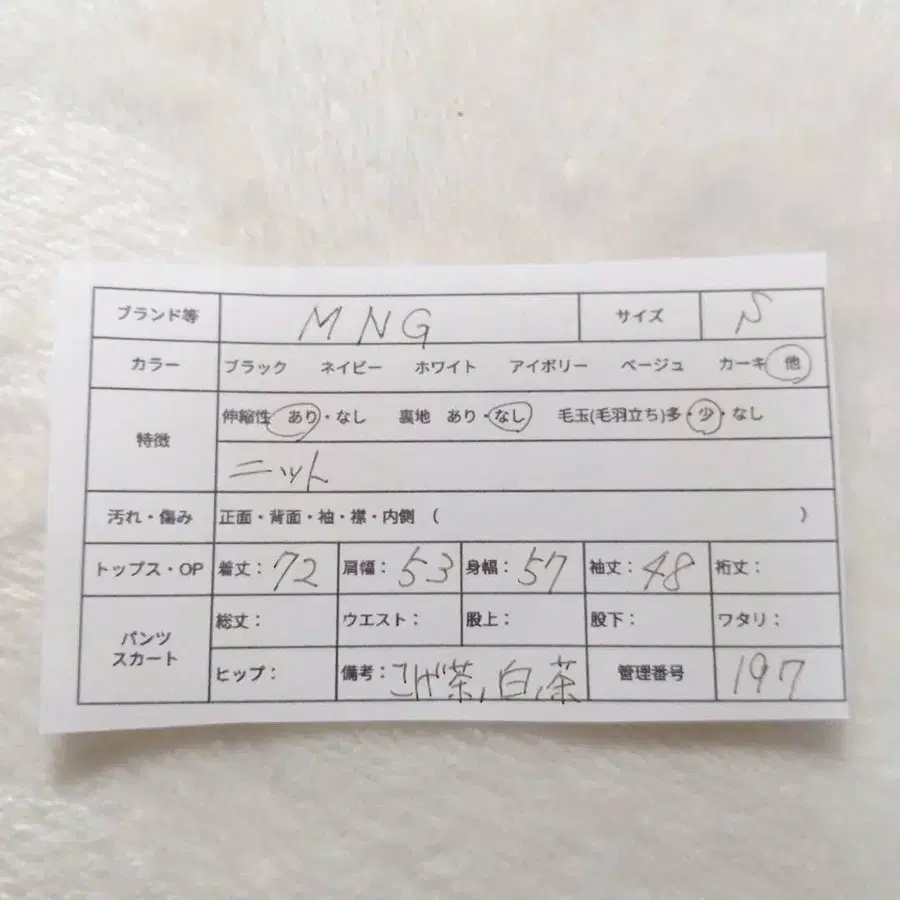 ブランド等 MNG サイズ S
カラー ブラック ネイビー ホワイト アイボリー ベージュ カーキ 他
特徴 伸縮性 あり・なし 裏地 あり・なし 毛玉(毛羽立ち)多・少・なし
ニット
汚れ・傷み 正面・背面・袖・襟・内側 ( )
トップス・OP 着丈：72 肩幅：53 身幅：57 袖丈：48 裄丈：
パンツ スカート 総丈： ウエスト： 股上： 股下： ワタリ：
ヒップ： 備考：こげ茶,白,茶 管理番号 197